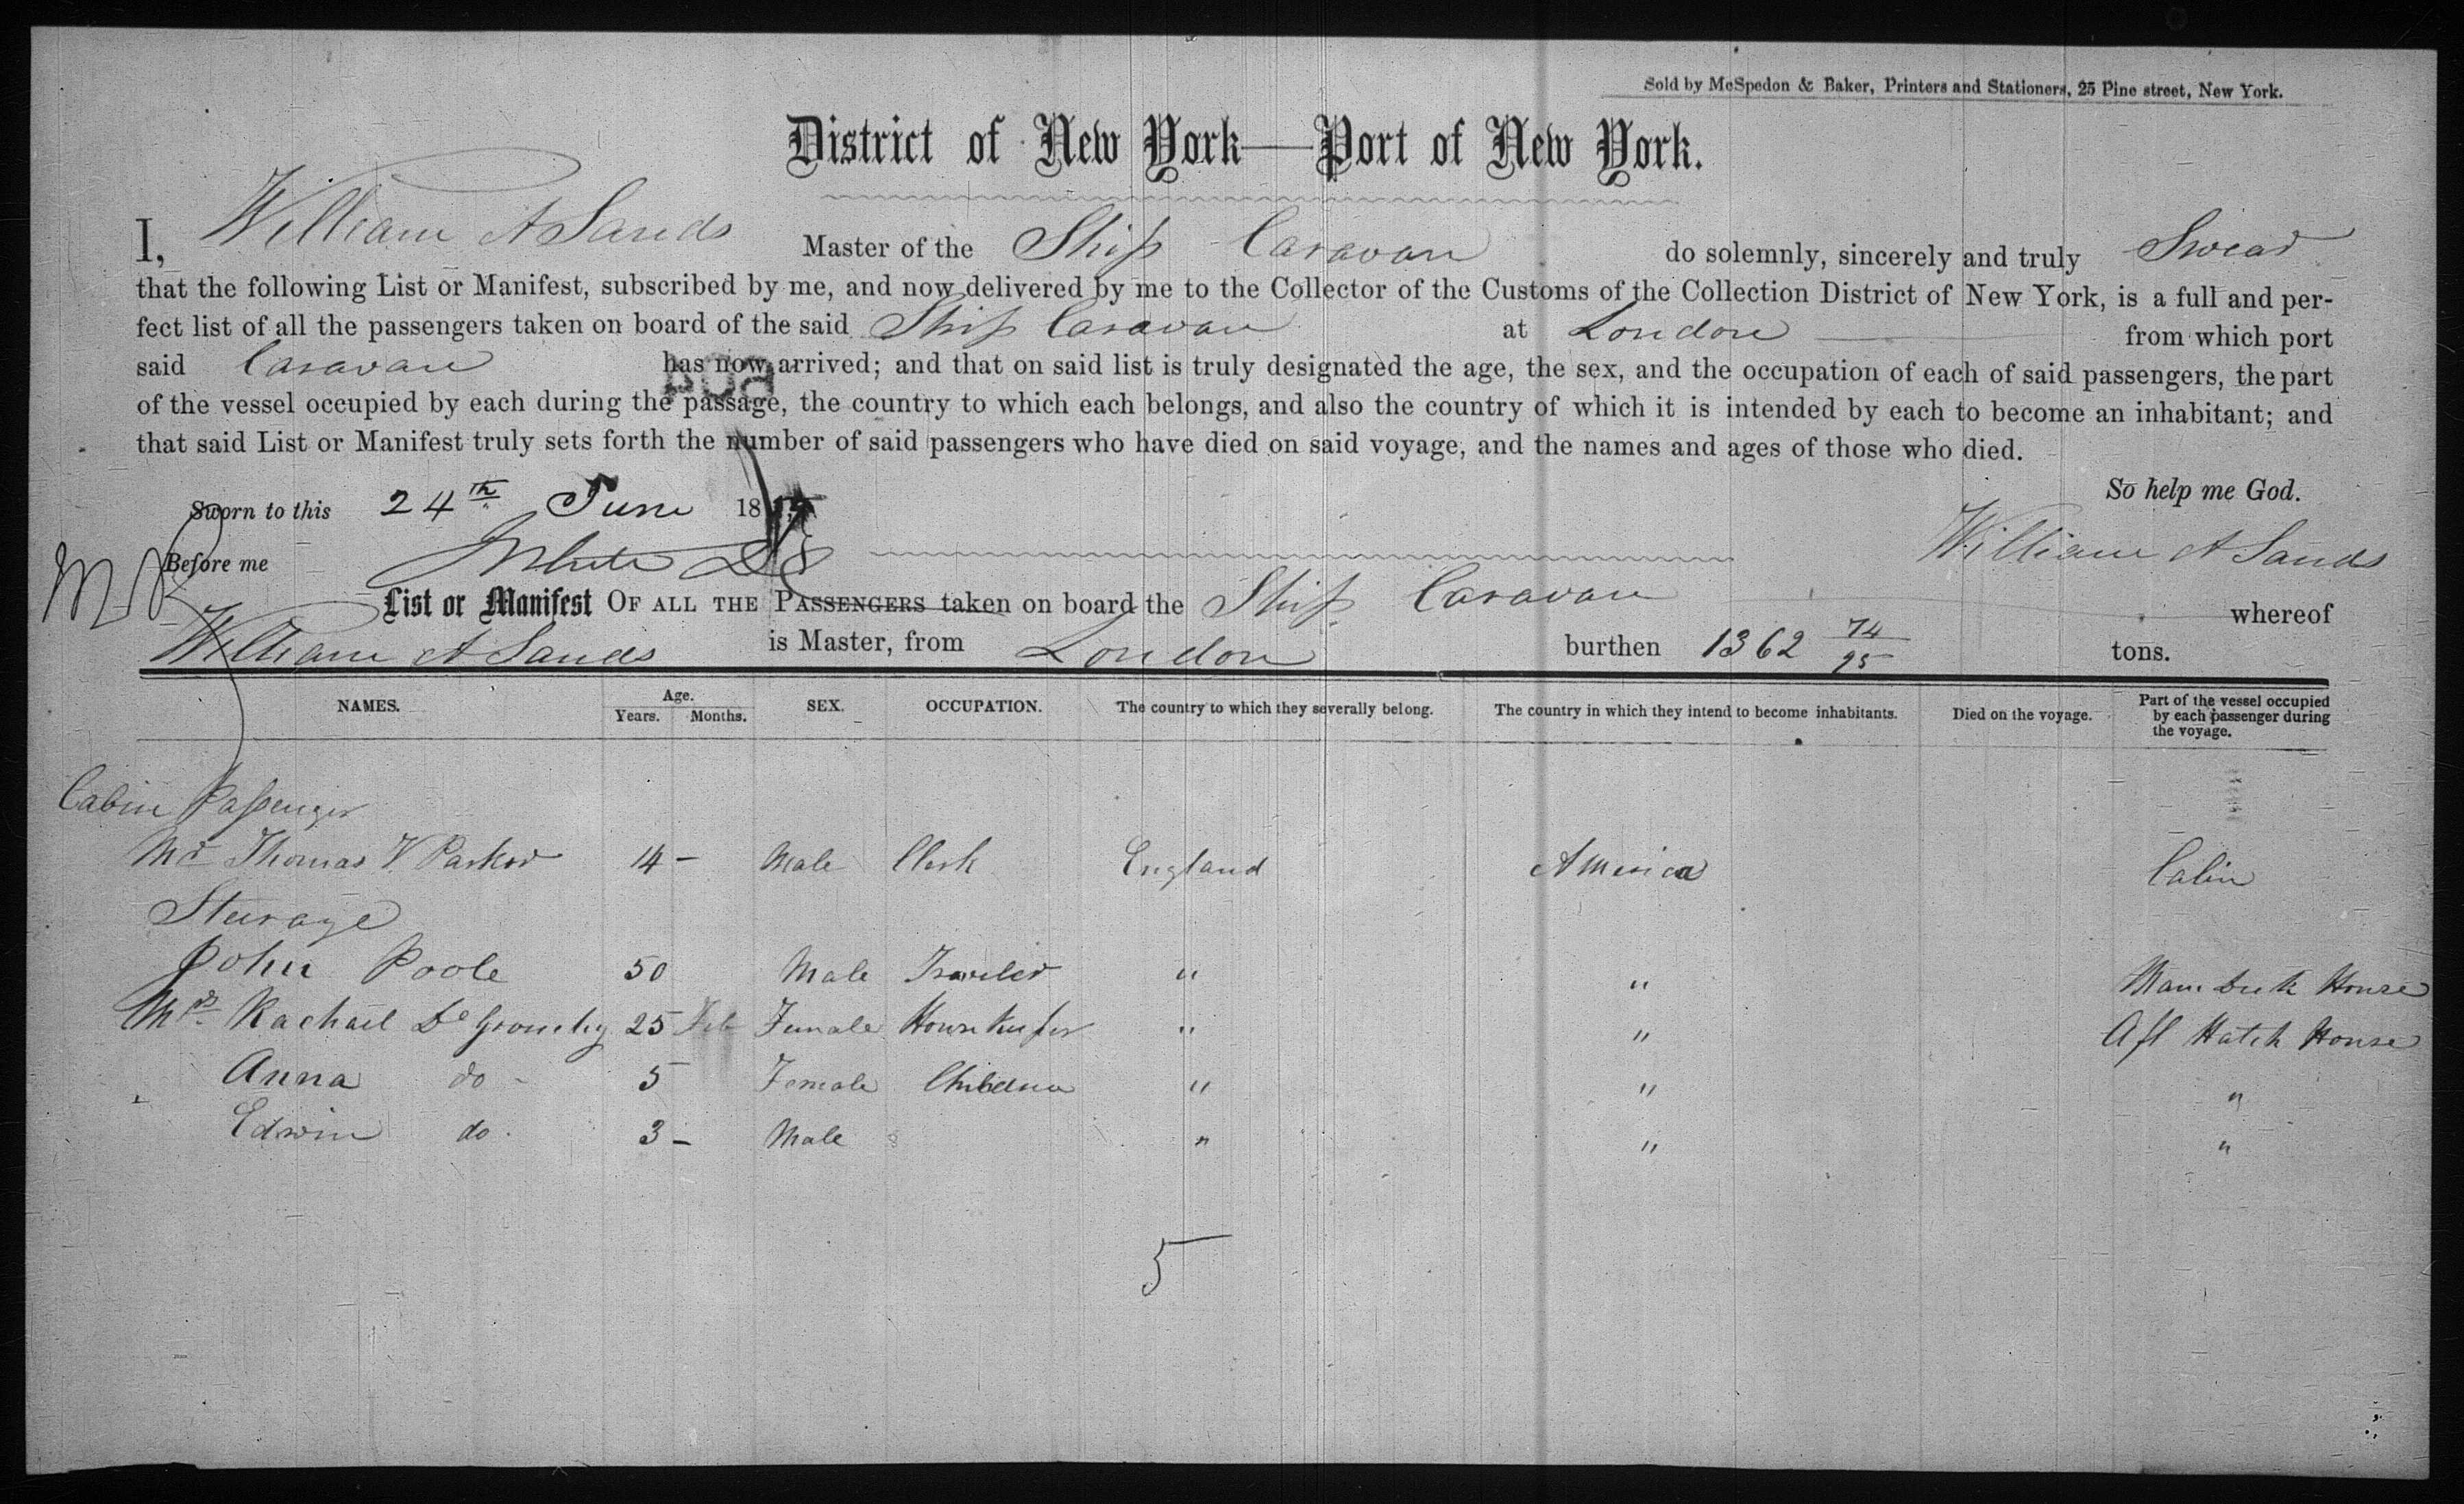 Sold by McSpedon & Baker, Printers and Stationers, 25 Pine street, New York.
District of New York—Port of New York.
I, William A Sands Master of the Ship Caravan do solemnly, sincerely and truly Swear
that the following List or Manifest, subscribed by me, and now delivered by me to the Collector of the Customs of the Collection District of New York, is a full and per-
fect list of all the passengers taken on board of the said Ship Caravan at London from which port
said Caravan has now arrived; and that on said list is truly designated the age, the sex, and the occupation of each of said passengers, the part
of the vessel occupied by each during the passage, the country to which each belongs, and also the country of which it is intended by each to become an inhabitant; and
that said List or Manifest truly sets forth the number of said passengers who have died on said voyage, and the names and ages of those who died.
So help me God.
Sworn to this 24th June 18
William A Sands
Before me White
List or Manifest OF ALL THE PASSENGERS taken on board the Ship Caravan whereof
William A Sands is Master, from London burthen 1362 74/95 tons.
NAMES. Age. Years. Months. SEX. OCCUPATION. The country to which they severally belong. The country in which they intend to become inhabitants. Died on the voyage. Part of the vessel occupied by each passenger during the voyage.
Cabin Passenger
Mr Thomas V. Parker 14 – Male Clerk England America Cabin
Steerage
John Poole 50 Male Traveler " " House
Mrs Rachael De 25 Female House Keeper " " Aft Hatch House
Anna do - 5 Female Children " " "
Edwin do. 3 – Male " " "
5